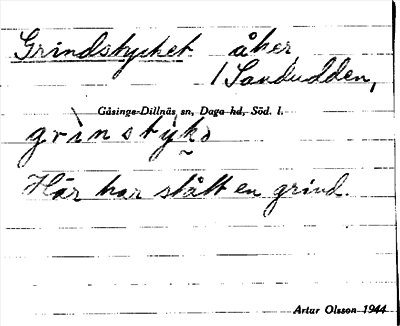 Grindstycket åker
/ Sandudden,
Gåsinge-Dillnäs sn, Daga hd, Söd. l.
Här har stått en grind.
Artur Olsson 1944